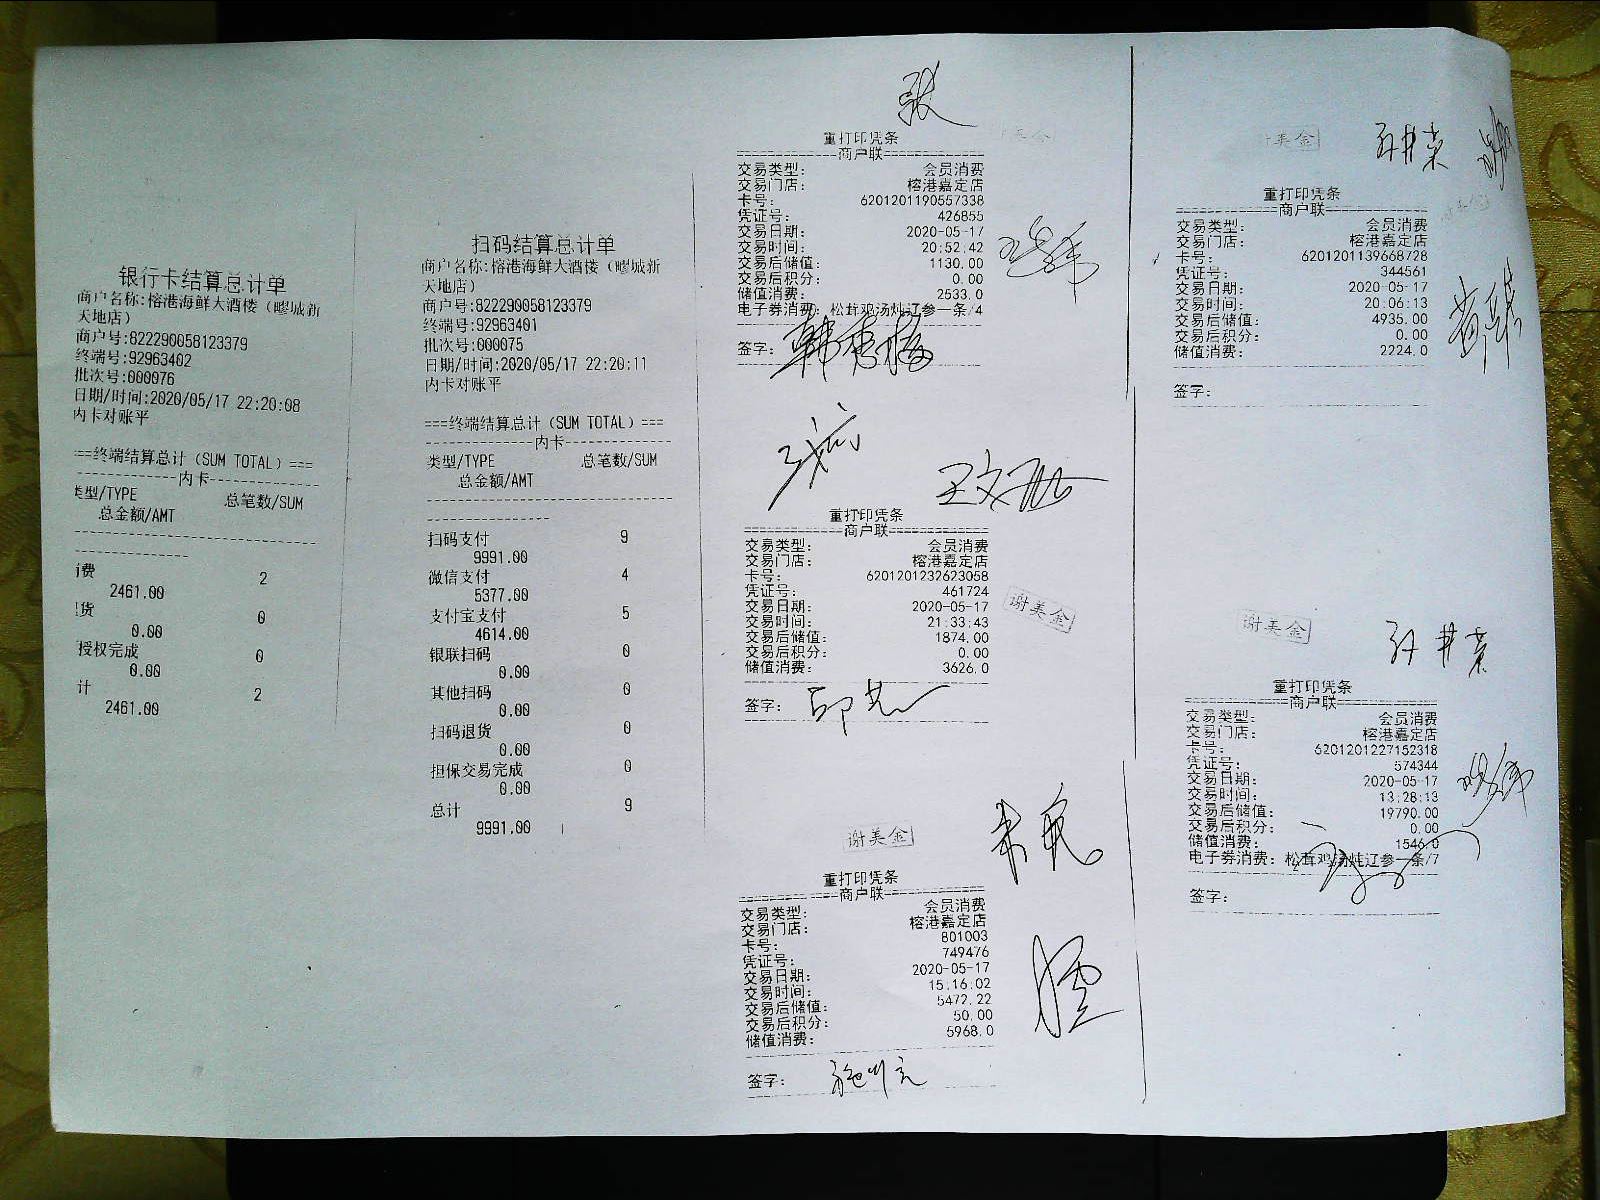 银行卡结算总计单
商户名称:榕港海鲜大酒楼（疁城新
天地店）
商户号:822290058123379
终端号:92963402
批次号:000076
日期/时间:2020/05/17 22:20:08
内卡对账平
===终端结算总计（SUM TOTAL）===
内卡
类型/TYPE 总笔数/SUM
总金额/AMT
消费 2
2461.00
退货 0
0.00
授权完成 0
0.00
计 2
2461.00
扫码结算总计单
商户名称:榕港海鲜大酒楼（疁城新
天地店）
商户号:822290058123379
终端号:92963401
批次号:000075
日期/时间:2020/05/17 22:20:11
内卡对账平
===终端结算总计（SUM TOTAL）===
内卡
类型/TYPE 总笔数/SUM
总金额/AMT
扫码支付 9
9991.00
微信支付 4
5377.00
支付宝支付 5
4614.00
银联扫码 0
0.00
其他扫码 0
0.00
扫码退货 0
0.00
担保交易完成 0
0.00
总计 9
9991.00
张
重打印凭条
商户联
交易类型: 会员消费
交易门店: 榕港嘉定店
卡号: 6201201190557338
凭证号: 426855
交易日期: 2020-05-17
交易时间: 20:52:42
交易后储值: 1130.00
交易后积分: 0.00
储值消费: 2533.0
电子券消费: 松茸鸡汤炖辽参一条/4
签字: 韩惠梅
王文
重打印凭条
商户联
交易类型: 会员消费
交易门店: 榕港嘉定店
卡号: 6201201232623058
凭证号: 461724
交易日期: 2020-05-17
交易时间: 21:33:43
交易后储值: 1874.00
交易后积分: 0.00
储值消费: 3626.0
谢美金
签字:
谢美金
重打印凭条
商户联
交易类型: 会员消费
交易门店: 榕港嘉定店
卡号: 801003
凭证号: 749476
交易日期: 2020-05-17
交易时间: 15:16:02
交易后储值: 5472.22
交易后积分: 50.00
储值消费: 5968.0
签字:
谢美金
重打印凭条
商户联
交易类型: 会员消费
交易门店: 榕港嘉定店
卡号: 6201201139668728
凭证号: 344561
交易日期: 2020-05-17
交易时间: 20:06:13
交易后储值: 4935.00
交易后积分: 0.00
储值消费: 2224.0
签字:
谢美金
重打印凭条
商户联
交易类型: 会员消费
交易门店: 榕港嘉定店
卡号: 6201201227152318
凭证号: 574344
交易日期: 2020-05-17
交易时间: 13:28:13
交易后储值: 19790.00
交易后积分: 0.00
储值消费: 1546.0
电子券消费: 松茸鸡汤炖辽参一条/7
签字: